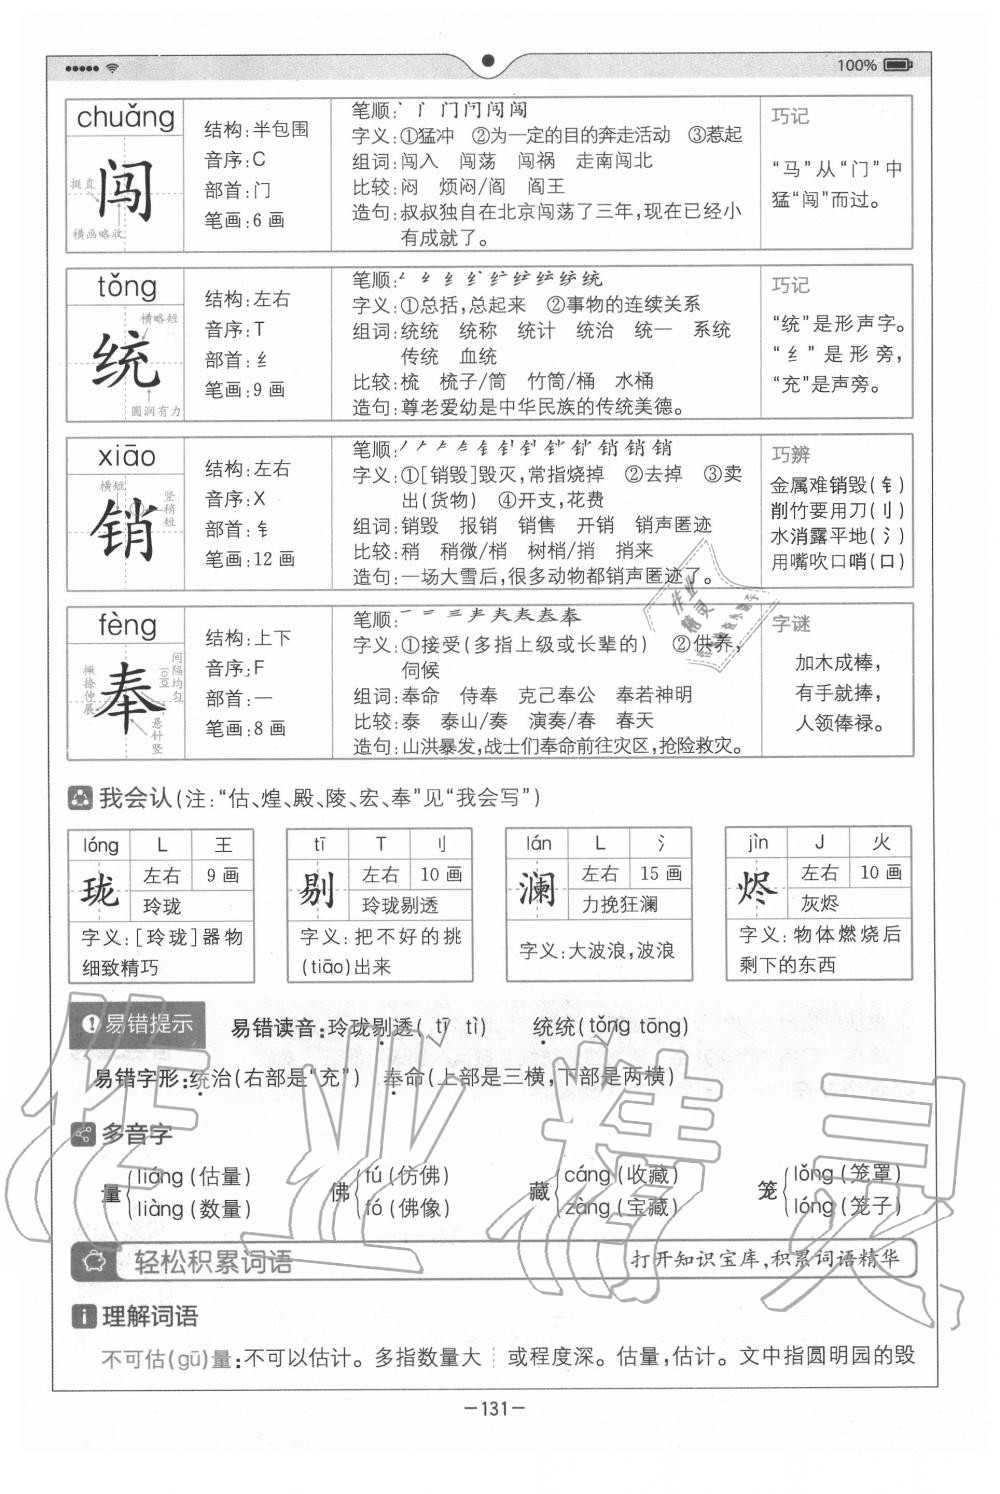 100%
chuǎng
闯
挺直
横画略收
结构:半包围
音序:C
部首:门
笔画:6 画
笔顺:
字义:①猛冲 ②为一定的目的奔走活动 ③惹起
组词:闯入 闯荡 闯祸 走南闯北
比较:闷 烦闷/阎 阎王
造句:叔叔独自在北京闯荡了三年,现在已经小
有成就了。
巧记
“马”从“门”中
猛“闯”而过。
tǒng
统
横略短
圆润有力
结构:左右
音序:T
部首:纟
笔画:9 画
笔顺:
字义:①总括,总起来 ②事物的连续关系
组词:统统 统称 统计 统治 统一 系统
传统 血统
比较:梳 梳子/筒 竹筒/桶 水桶
造句:尊老爱幼是中华民族的传统美德。
巧记
“统”是形声字。
“纟”是形旁,
“充”是声旁。
xiāo
销
横短
竖稍短
结构:左右
音序:X
部首:钅
笔画:12 画
笔顺:
字义:①[销毁]毁灭,常指烧掉 ②去掉 ③卖
出(货物) ④开支,花费
组词:销毁 报销 销售 开销 销声匿迹
比较:稍 稍微/梢 树梢/捎 捎来
造句:一场大雪后,很多动物都销声匿迹了。
巧辨
金属难销毁(钅)
削竹要用刀(刂)
水消露平地(氵)
用嘴吹口哨(口)
fèng
奉
撇捺伸展
间隔均匀
悬针竖
结构:上下
音序:F
部首:一
笔画:8 画
笔顺:
字义:①接受(多指上级或长辈的) ②供养,
伺候
组词:奉命 侍奉 克己奉公 奉若神明
比较:泰 泰山/奏 演奏/春 春天
造句:山洪暴发,战士们奉命前往灾区,抢险救灾。
字谜
加木成棒,
有手就捧,
人领俸禄。
我会认(注:“估、煌、殿、陵、宏、奉”见“我会写”)
lóng L 王
珑 左右 9 画
玲珑
字义:[玲珑]器物
细致精巧
tī T 刂
剔 左右 10 画
玲珑剔透
字义:把不好的挑
(tiāo)出来
lán L 氵
澜 左右 15 画
力挽狂澜
字义:大波浪,波浪
jìn J 火
烬 左右 10 画
灰烬
字义:物体燃烧后
剩下的东西
易错提示 易错读音:玲珑剔透(tī√ tì) 统统(tǒng√ tōng)
易错字形:统治(右部是“充”) 奉命(上部是三横,下部是两横)
多音字
量{liáng(估量) liàng(数量) 佛{fú(仿佛) fó(佛像) 藏{cáng(收藏) zàng(宝藏) 笼{lǒng(笼罩) lóng(笼子)
轻松积累词语 打开知识宝库,积累词语精华
理解词语
不可估(gū)量:不可以估计。多指数量大 或程度深。估量,估计。文中指圆明园的毁
—131—
作业精灵